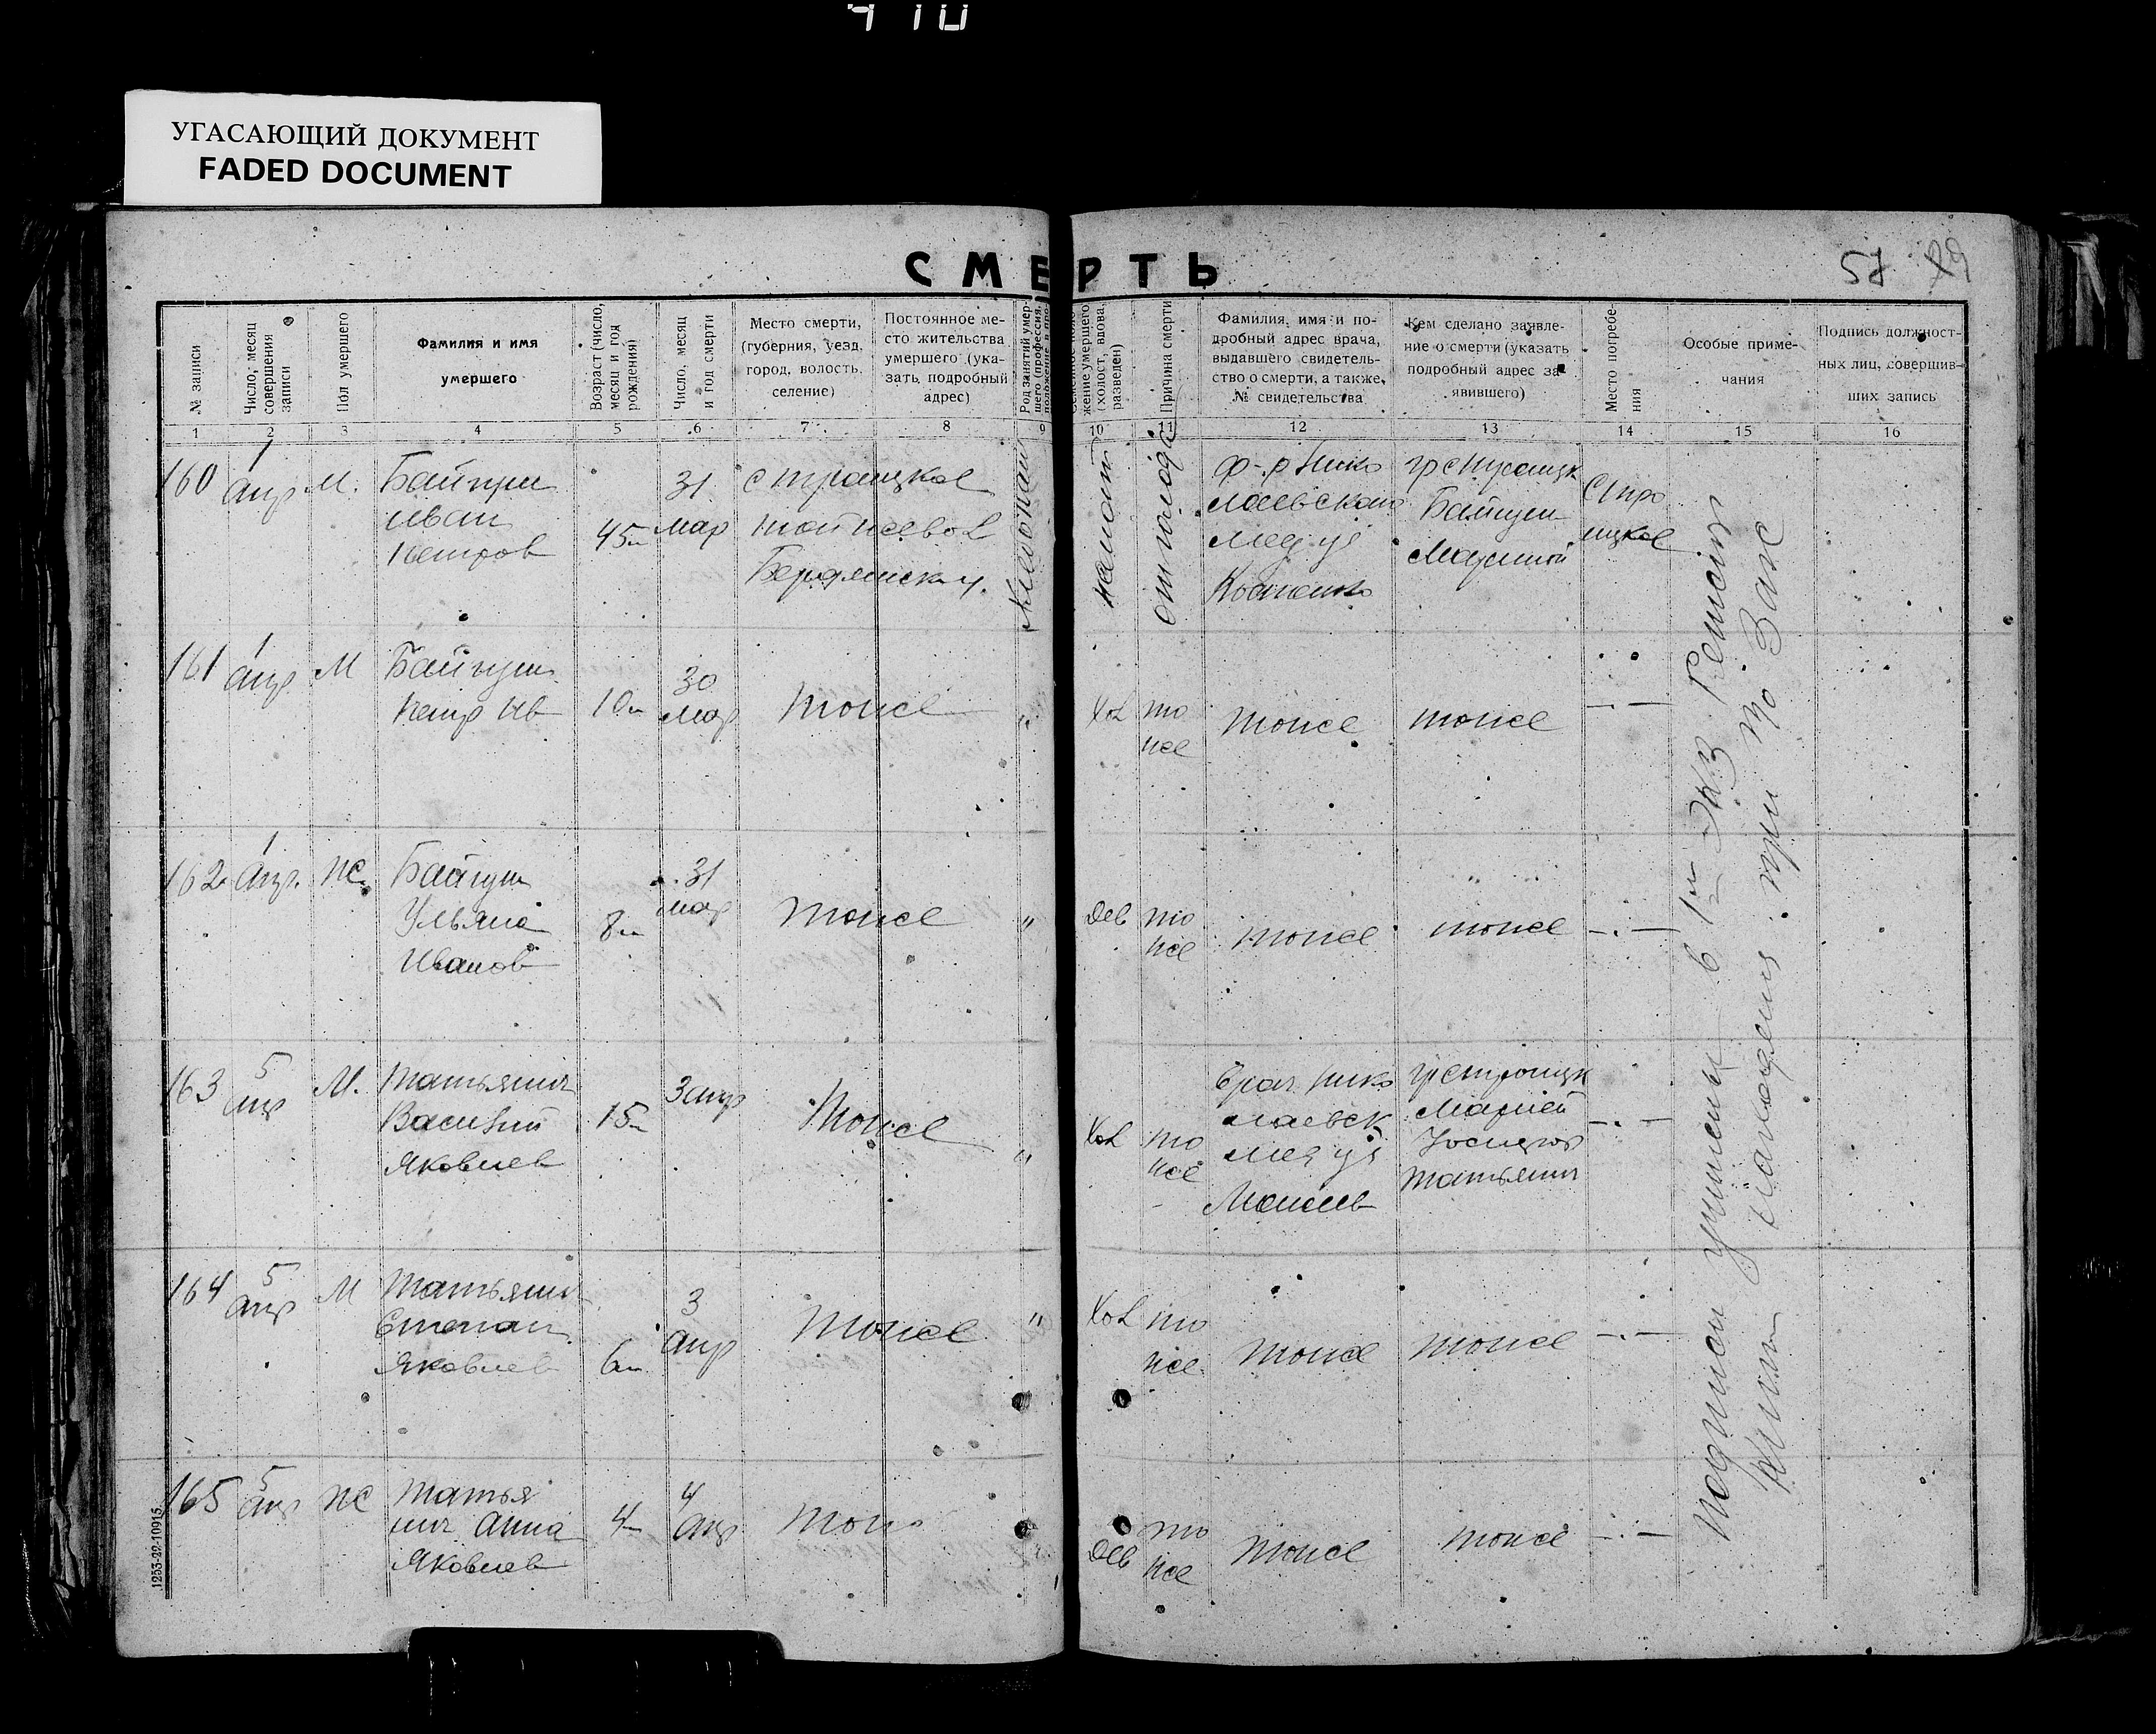 УГАСАЮЩИЙ ДОКУМЕНТ
FADED DOCUMENT
СМЕРТЬ
57
29
№ записи
Число, месяц совершения записи
Пол умершего
Фамилия и имя
умершего
Возраст (число, месяц и год рождения)
Число, месяц и год смерти
Место смерти,
(губерния, уезд,
город, волость,
селение)
Постоянное ме-
сто жительства
умершего (ука-
зать подробный
адрес)
Род занятий умер-
шего (профессия,
жение умершего
(холост, вдова,
разведен)
Причина смерти
Фамилия, имя и по-
дробный адрес врача,
выдавшего свидетель-
ство о смерти, а также,
№ свидетельства
Кем сделано заявле-
ние о смерти (указать
подробный адрес за-
явившего)
Место погребе-
ния
Особые приме-
чания
Подпись должност-
ных лиц, совершив-
ших запись
1 2 3 4 5 6 7 8 9 10 11 12 13 14 15 16
160
1
апр
М.
Байгуш
Иван
Петров
45
31
мар
с Троицкое
тойжевол
Бердянск у.
женат
от голода
ф-р Нико
лаевского
мед уч
гр с Троицк
Байгуш
Марией
С Тро
ицкое
161
1
апр
М
Байгуш
Петр Ив
10
30
мар
тоже
"
хол
то
же
тоже
тоже
— · —
162
1
апр.
ж
Байгуш
Ульяна
Иванов
8
31
мар
тоже
"
дев
то
же
тоже
тоже
— · —
163
5
апр
М.
Татьянич
Василий
Яковлев
15
3 апр
тоже
"
хол
то
же
врач Нико
лаевск
мед уч
гр с Троицк
Марией
Татьянич
— · —
164
5
апр
М
Татьянич
Степан
Яковлев
6
3
апр
тоже
"
хол
то
же
тоже
тоже
— · —
165
5
апр
ж
Татья
нич Анна
Яковлев
4
4
апр
тож
дев
то
же
тоже
тоже
— · —
в 1м экз
при
1253-22-10915